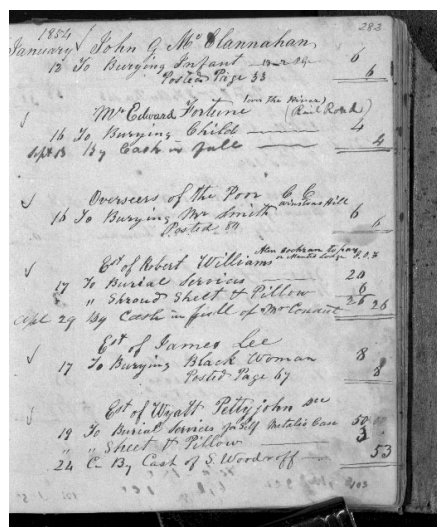 1854 283
January John G McClannahan
12 To Burying Infant 6
Posted Page 33 6
Mr Edward Fortune (over the River) (Rail Road)
16 To Burying Child 4
Sept 13 By Cash in full 4
Overseers of the Poor C C
16 To Burying Mr Smith Winstons Hill 6
Posted 6
Est of Robert Williams Alen Cochran to pay
17 To Burial Services 20
" Shroud Sheet & Pillow 6
26 26
Apl 29 By Cash in full of
Est of James Lee
17 To Burying Black Woman 8
Posted Page 67 8
Est of Wyatt Pettyjohn Dec
19 To Burial Services for Self Metalic Case 50
" " Sheet & Pillow 3
24 C By Cash of S. Woodroff 53
103